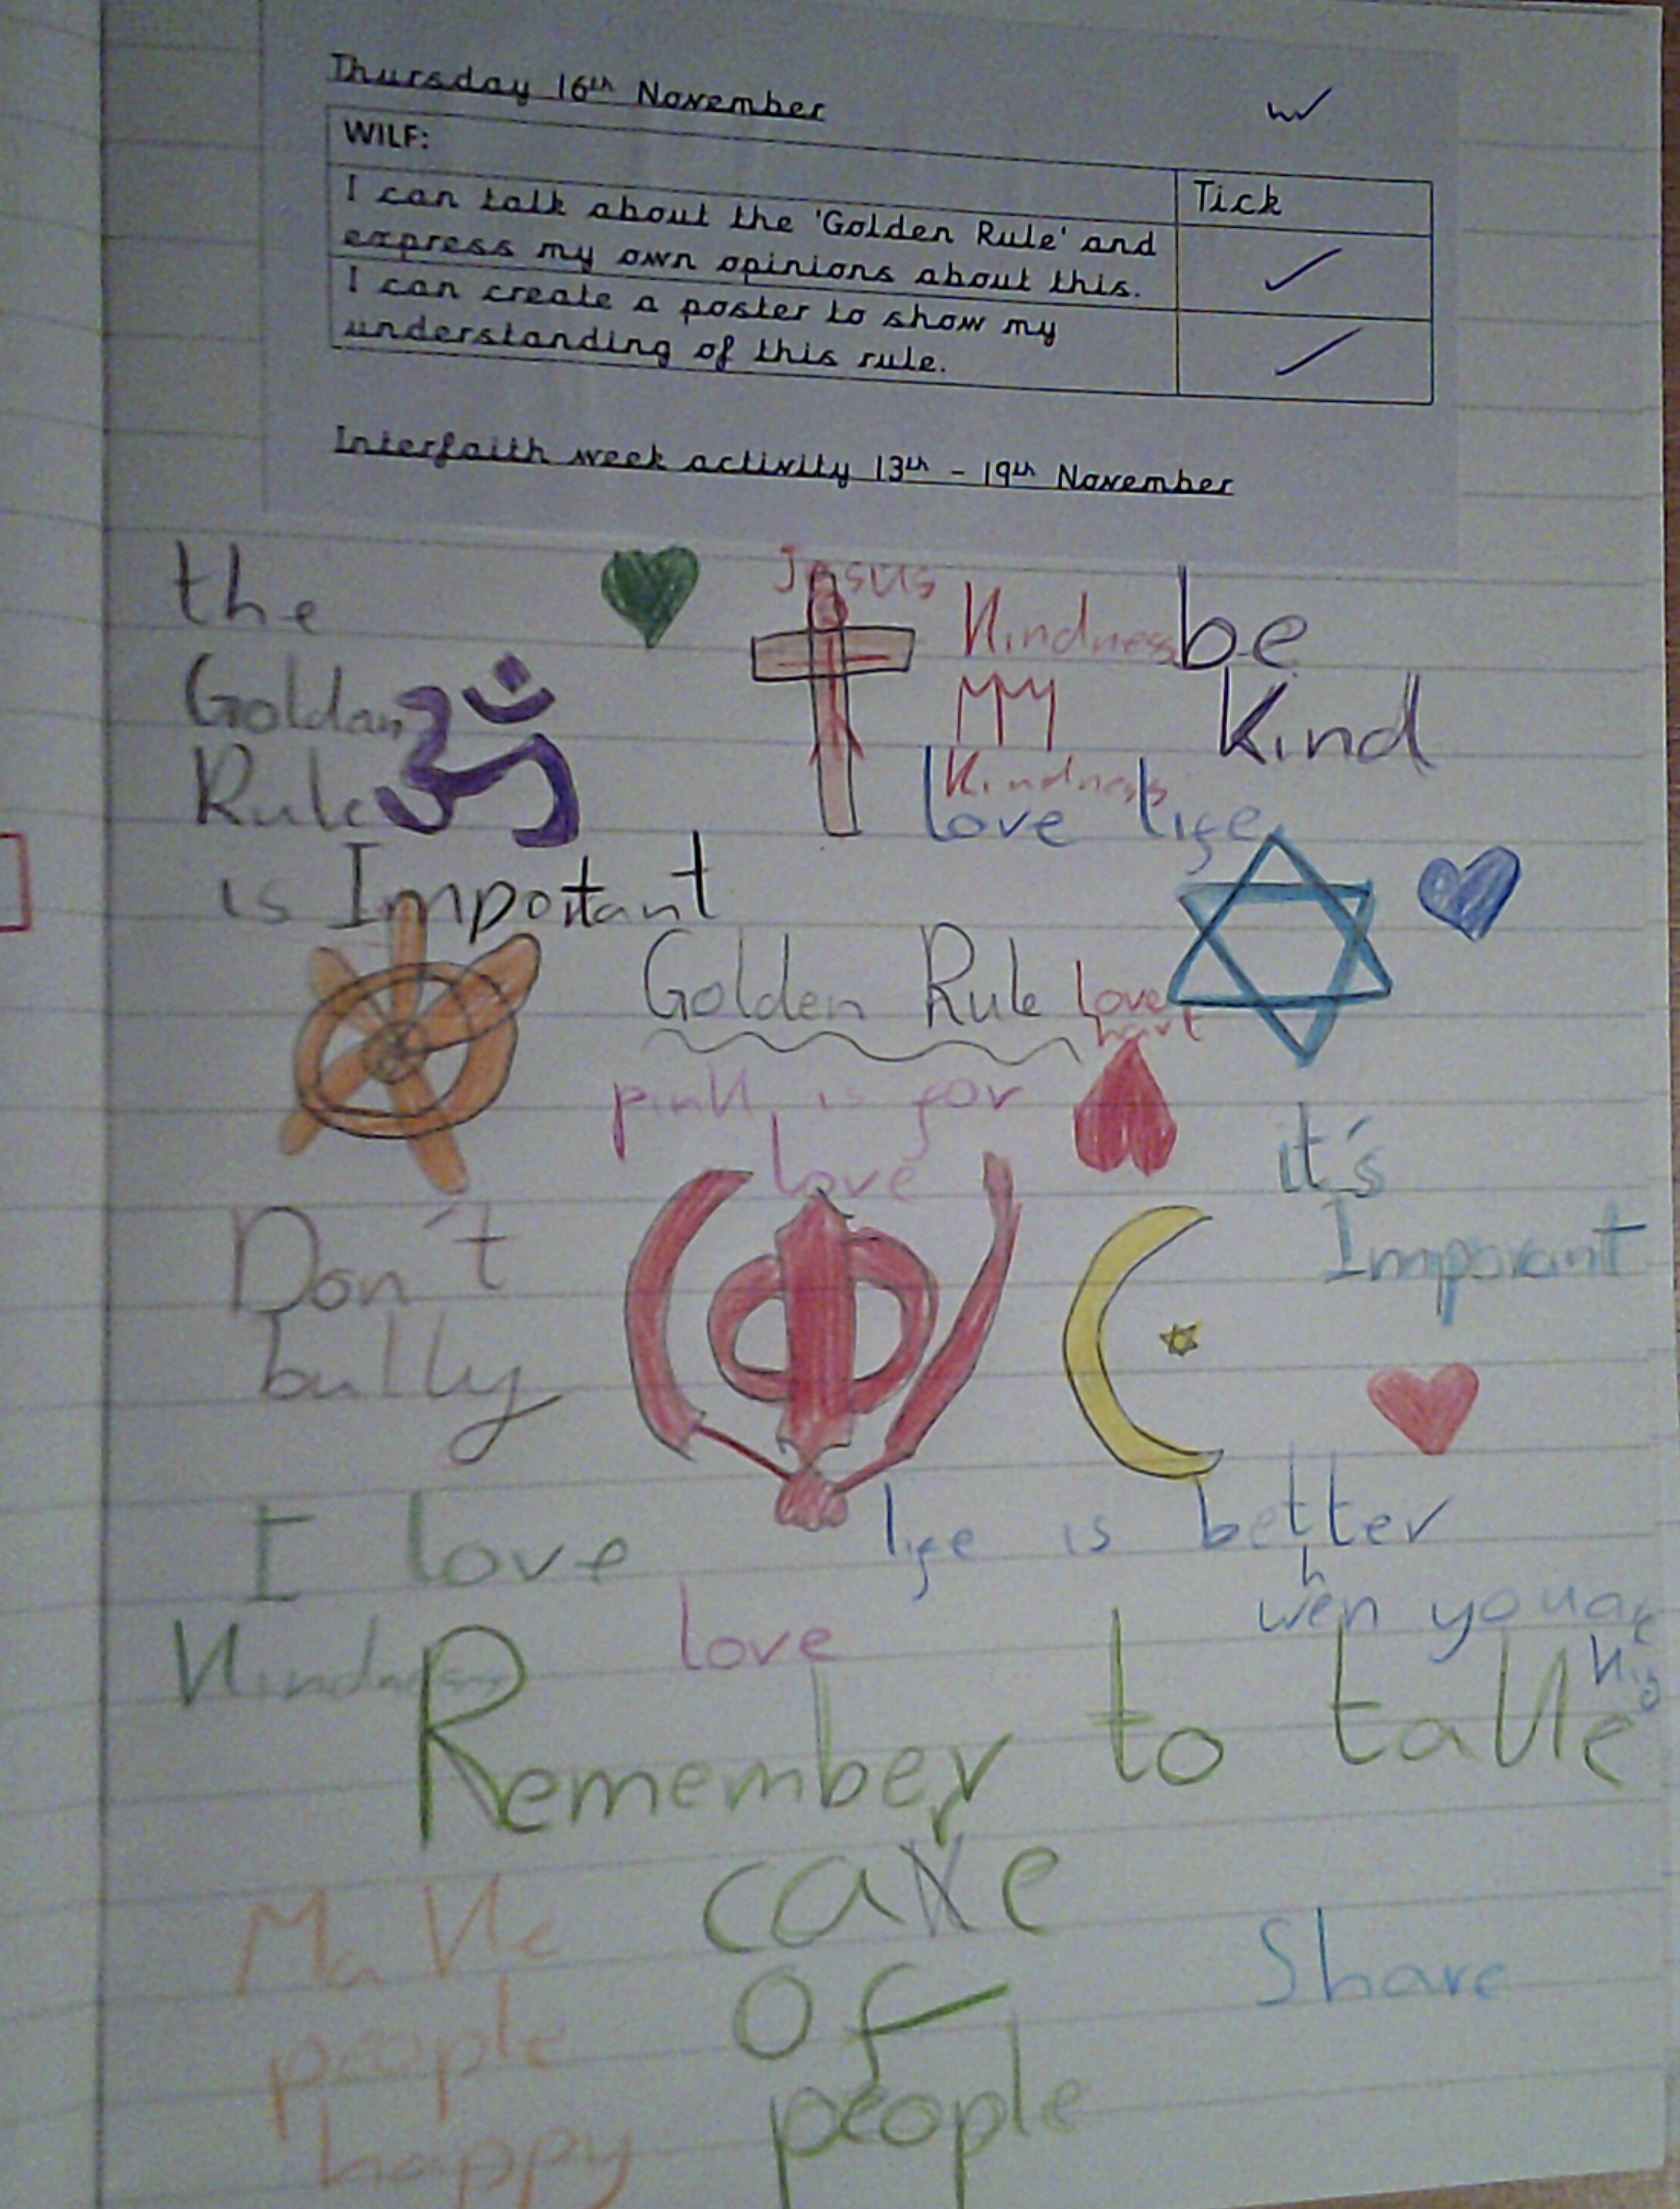 Thursday 16th November
WILF:
Tick
I can talk about the 'Golden Rule' and
express my own opinions about this.
I can create a poster to show my
understanding of this rule.
Interfaith week activity 13th - 19th November
the
Goldan
Rule
is Important
Jesus
Kindness
Kindness
be
Kind
love life
Golden Rule
Love
hart
pink is for
love
it's
Imporant
Don't
bully
I love
Kindness
life is better
when you are
love
Remember to take
care
of
people
Make
people
happy
Share